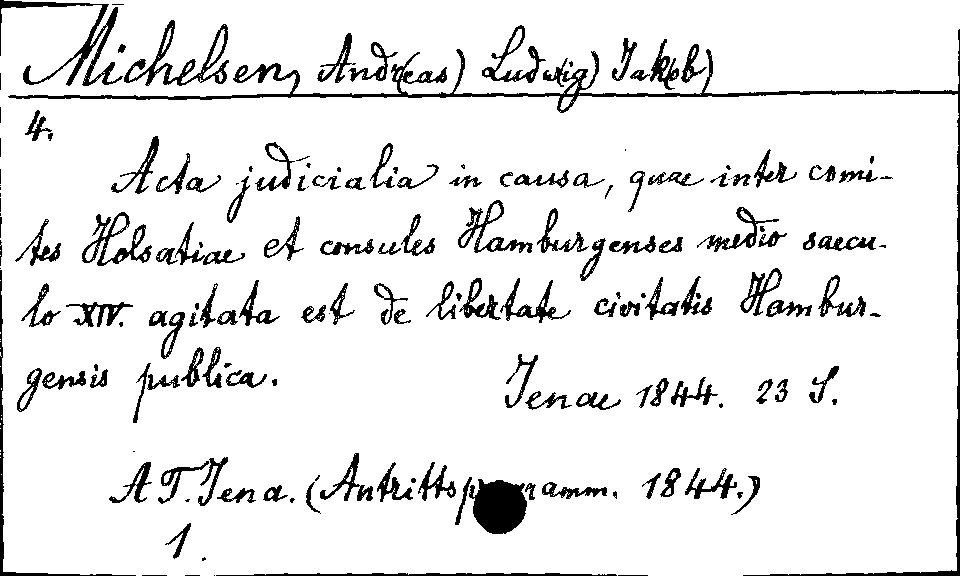 Michelsen, Andr(eas) Ludw(ig) Jak(ob)
4.
Acta judicialia in causa, quae inter comi-
tes Holsatiae et consules Hamburgenses medio saecu-
lo XIV. agitata est de libertate civitatis Hambur-
gensis publica.
Jenae 1844. 23 S.
A T. Jena. (Antrittsprogramm. 1844.)
1.